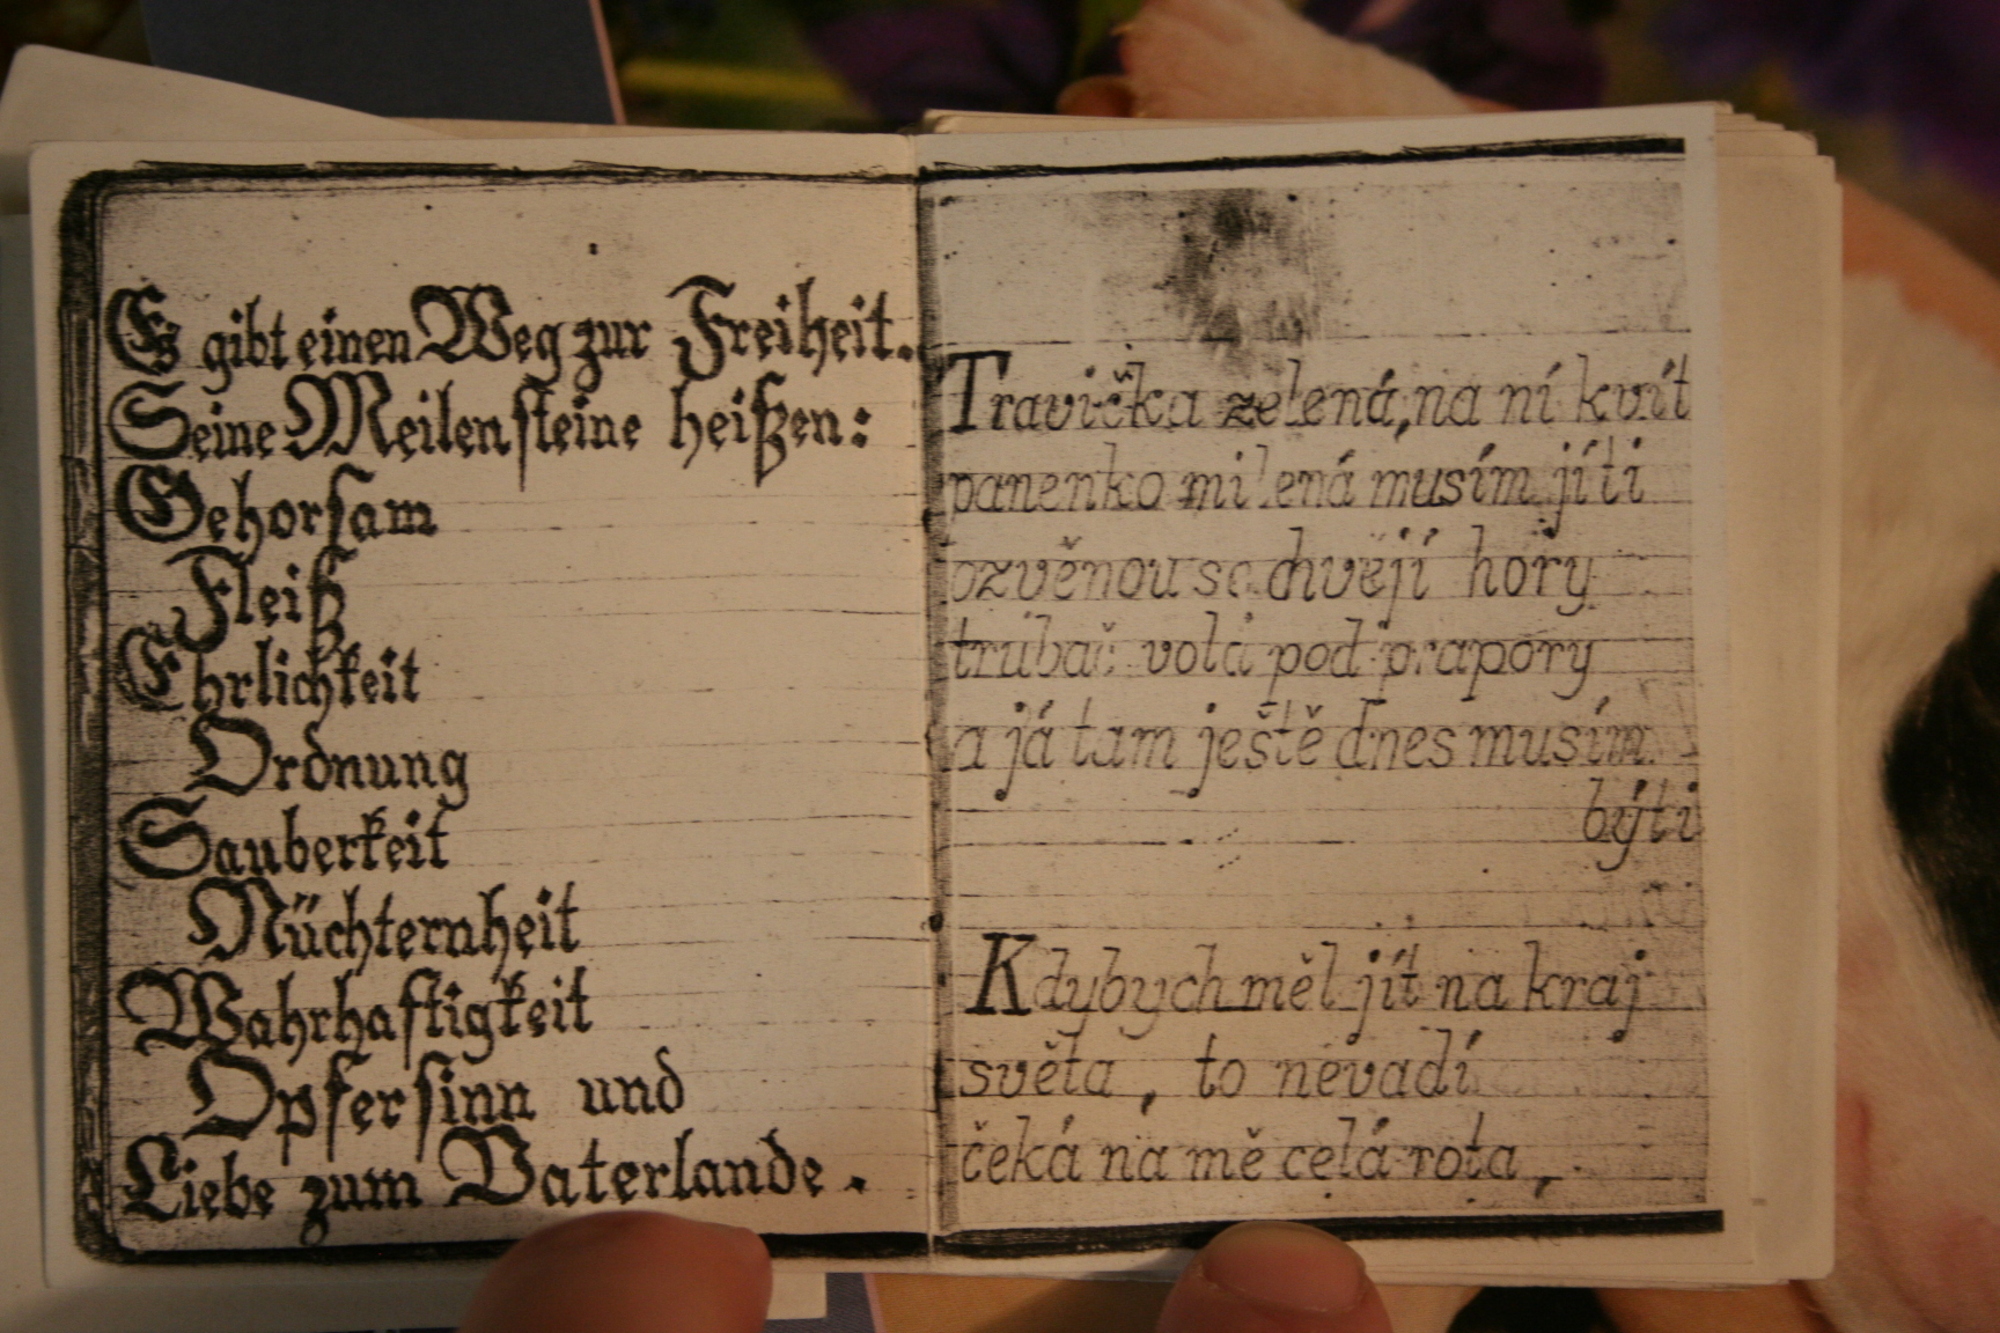 Es gibt einen Weg zur Freiheit.
Seine Meilensteine heißen:
Gehorsam
Fleiß
Ehrlichkeit
Ordnung
Sauberkeit
Nüchternheit
Wahrhaftigkeit
Opfersinn und
Liebe zum Vaterlande.
Travička zelená, na ní kvít
panenko milená musím jíti
ozvěnou se chvějí hory
trubač volá pod prapory
a já tam ještě dnes musím
býti
Kdybych měl jít na kraj
světa, to nevadí
čeká na mě celá rota,